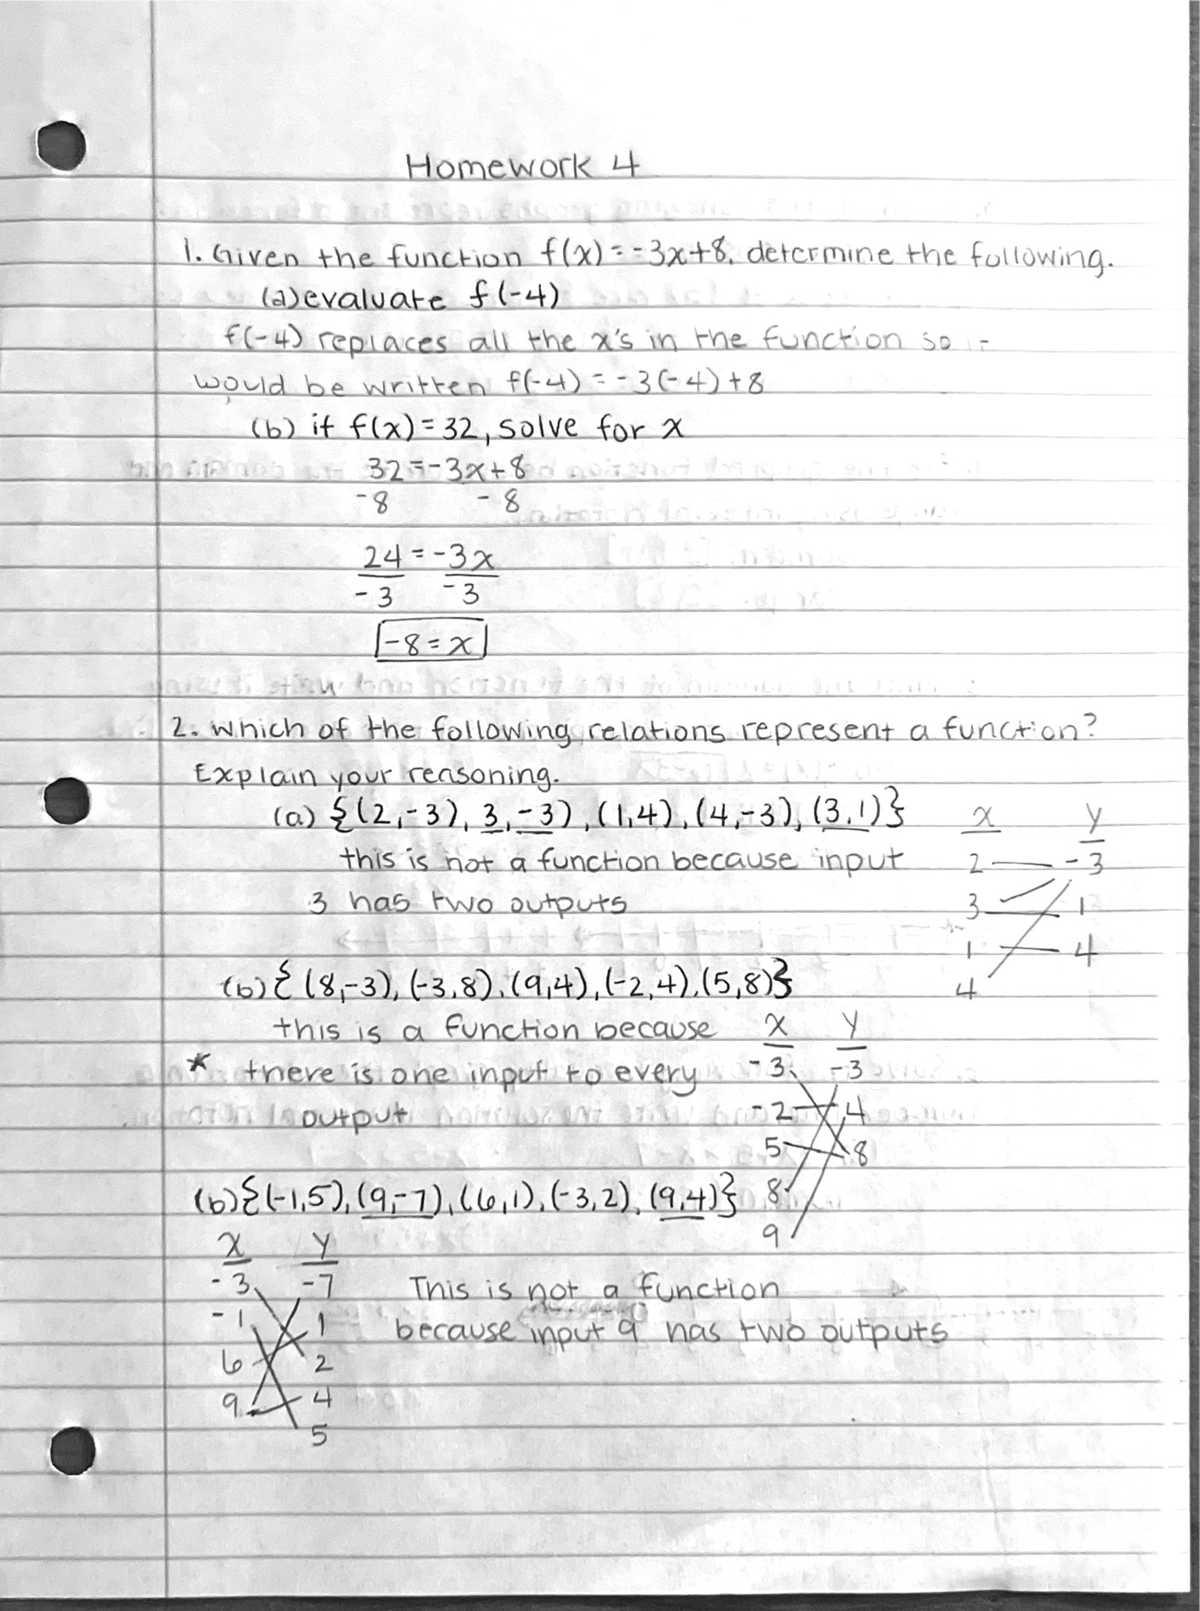 Homework 4
1. Given the function f(x) = -3x+8, determine the following.
(a) evaluate f(-4)
f(-4) replaces all the x's in the function so
would be written f(-4) = -3(-4)+8
(b) if f(x) = 32, solve for x
32 = -3x+8
-8 -8
24 = -3x
-3 -3
-8 = x
2. which of the following relations represent a function?
Explain your reasoning.
(a) {(2,-3), 3,-3), (1,4), (4,-3), (3,1)} x y
this is not a function because input 2 -3
3 has two outputs 3 1
1 4
(b) { (8,-3), (-3,8), (9,4), (-2,4), (5,8)} 4
this is a function because x y
* there is one input to every -3 -3
output -2 4
5 8
(b) {(-1,5), (9,-7), (6,1), (-3,2), (9,4)} 8
x y 9
-3 -7 This is not a function
-1 1 because input 9 has two outputs
6 2
9 4
5